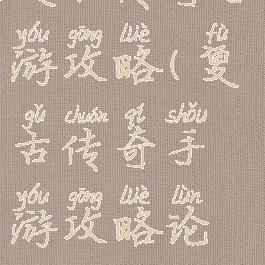 yóu gōng lüè fù
游攻略(复
gǔ chuán qí shǒu
古传奇手
yóu gōng lüè lùn
游攻略论